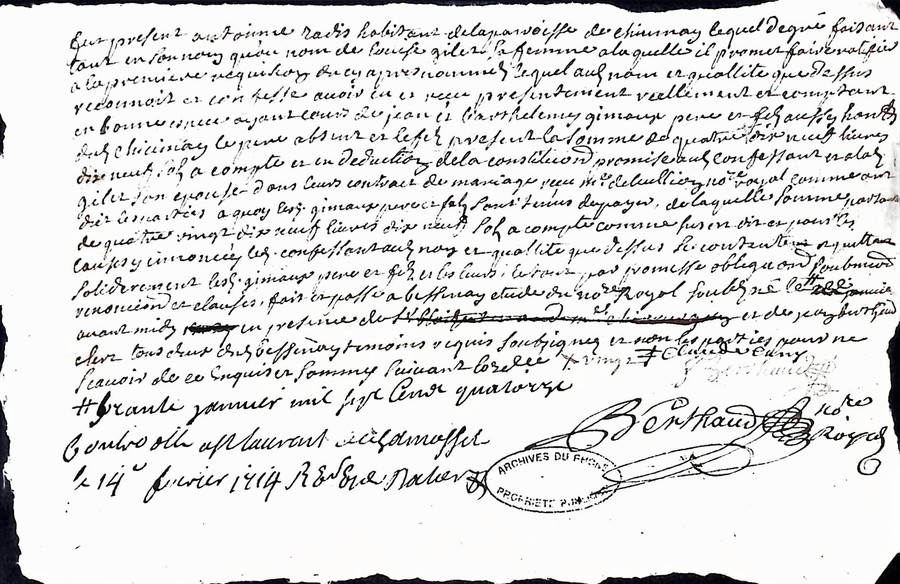 fut present antoinne radis habitant de la parroisse de chiunnay lequel de gré faisant
tant en son nom qu'au nom de louise gilet sa femme a laquelle il promet faire ratiffier
a la premiere requisition du cy apres nommés lequel aud nom et quallite que dessus
reconnoit et confesse avoir eu et receu presentement reellement et comptant
en bonne espece ayant cours de jean et berthelemy gimaux pere et fils aussy
dud le pere absent et le fils present la somme de quatre vingt dix neuf livres
dix neuf sols a compte et en deduction de la constitution promise aud confessant et alad
gilet son epouse dans leurs contract de mariage receu notre royal comme ont
dit les parties a quoy lesd gimaux pere et fils sont tenus de payer, de laquelle somme
de quatre vingt dix neuf livres dix neuf sols a compte comme sus en dit et pour les
causes y enoncée led confessant aud nom et quallite que dessus se contente et quittant
soliderement lesd gimaux pere et fils et les leurs, le tout par promesse obligaond soubmiond
renonciond et clauses, fait et passé a bessenay etude du notre Royal soubsigne le #
avant midy en presence de et de jean berthaud
clerc tous deux dud bessenay temoins requis soubsignes et non les parties pour ne
scavoir de ce enquis et sommes suivant lordce # Claude
# trante janvier mil sept cents quatorze
Berthaud notre
Royal
Controlle a st laurent de chamousset
le 14e fevrier 1714
ARCHIVES DU RHONE
PROPRIETE PUBLIQUE